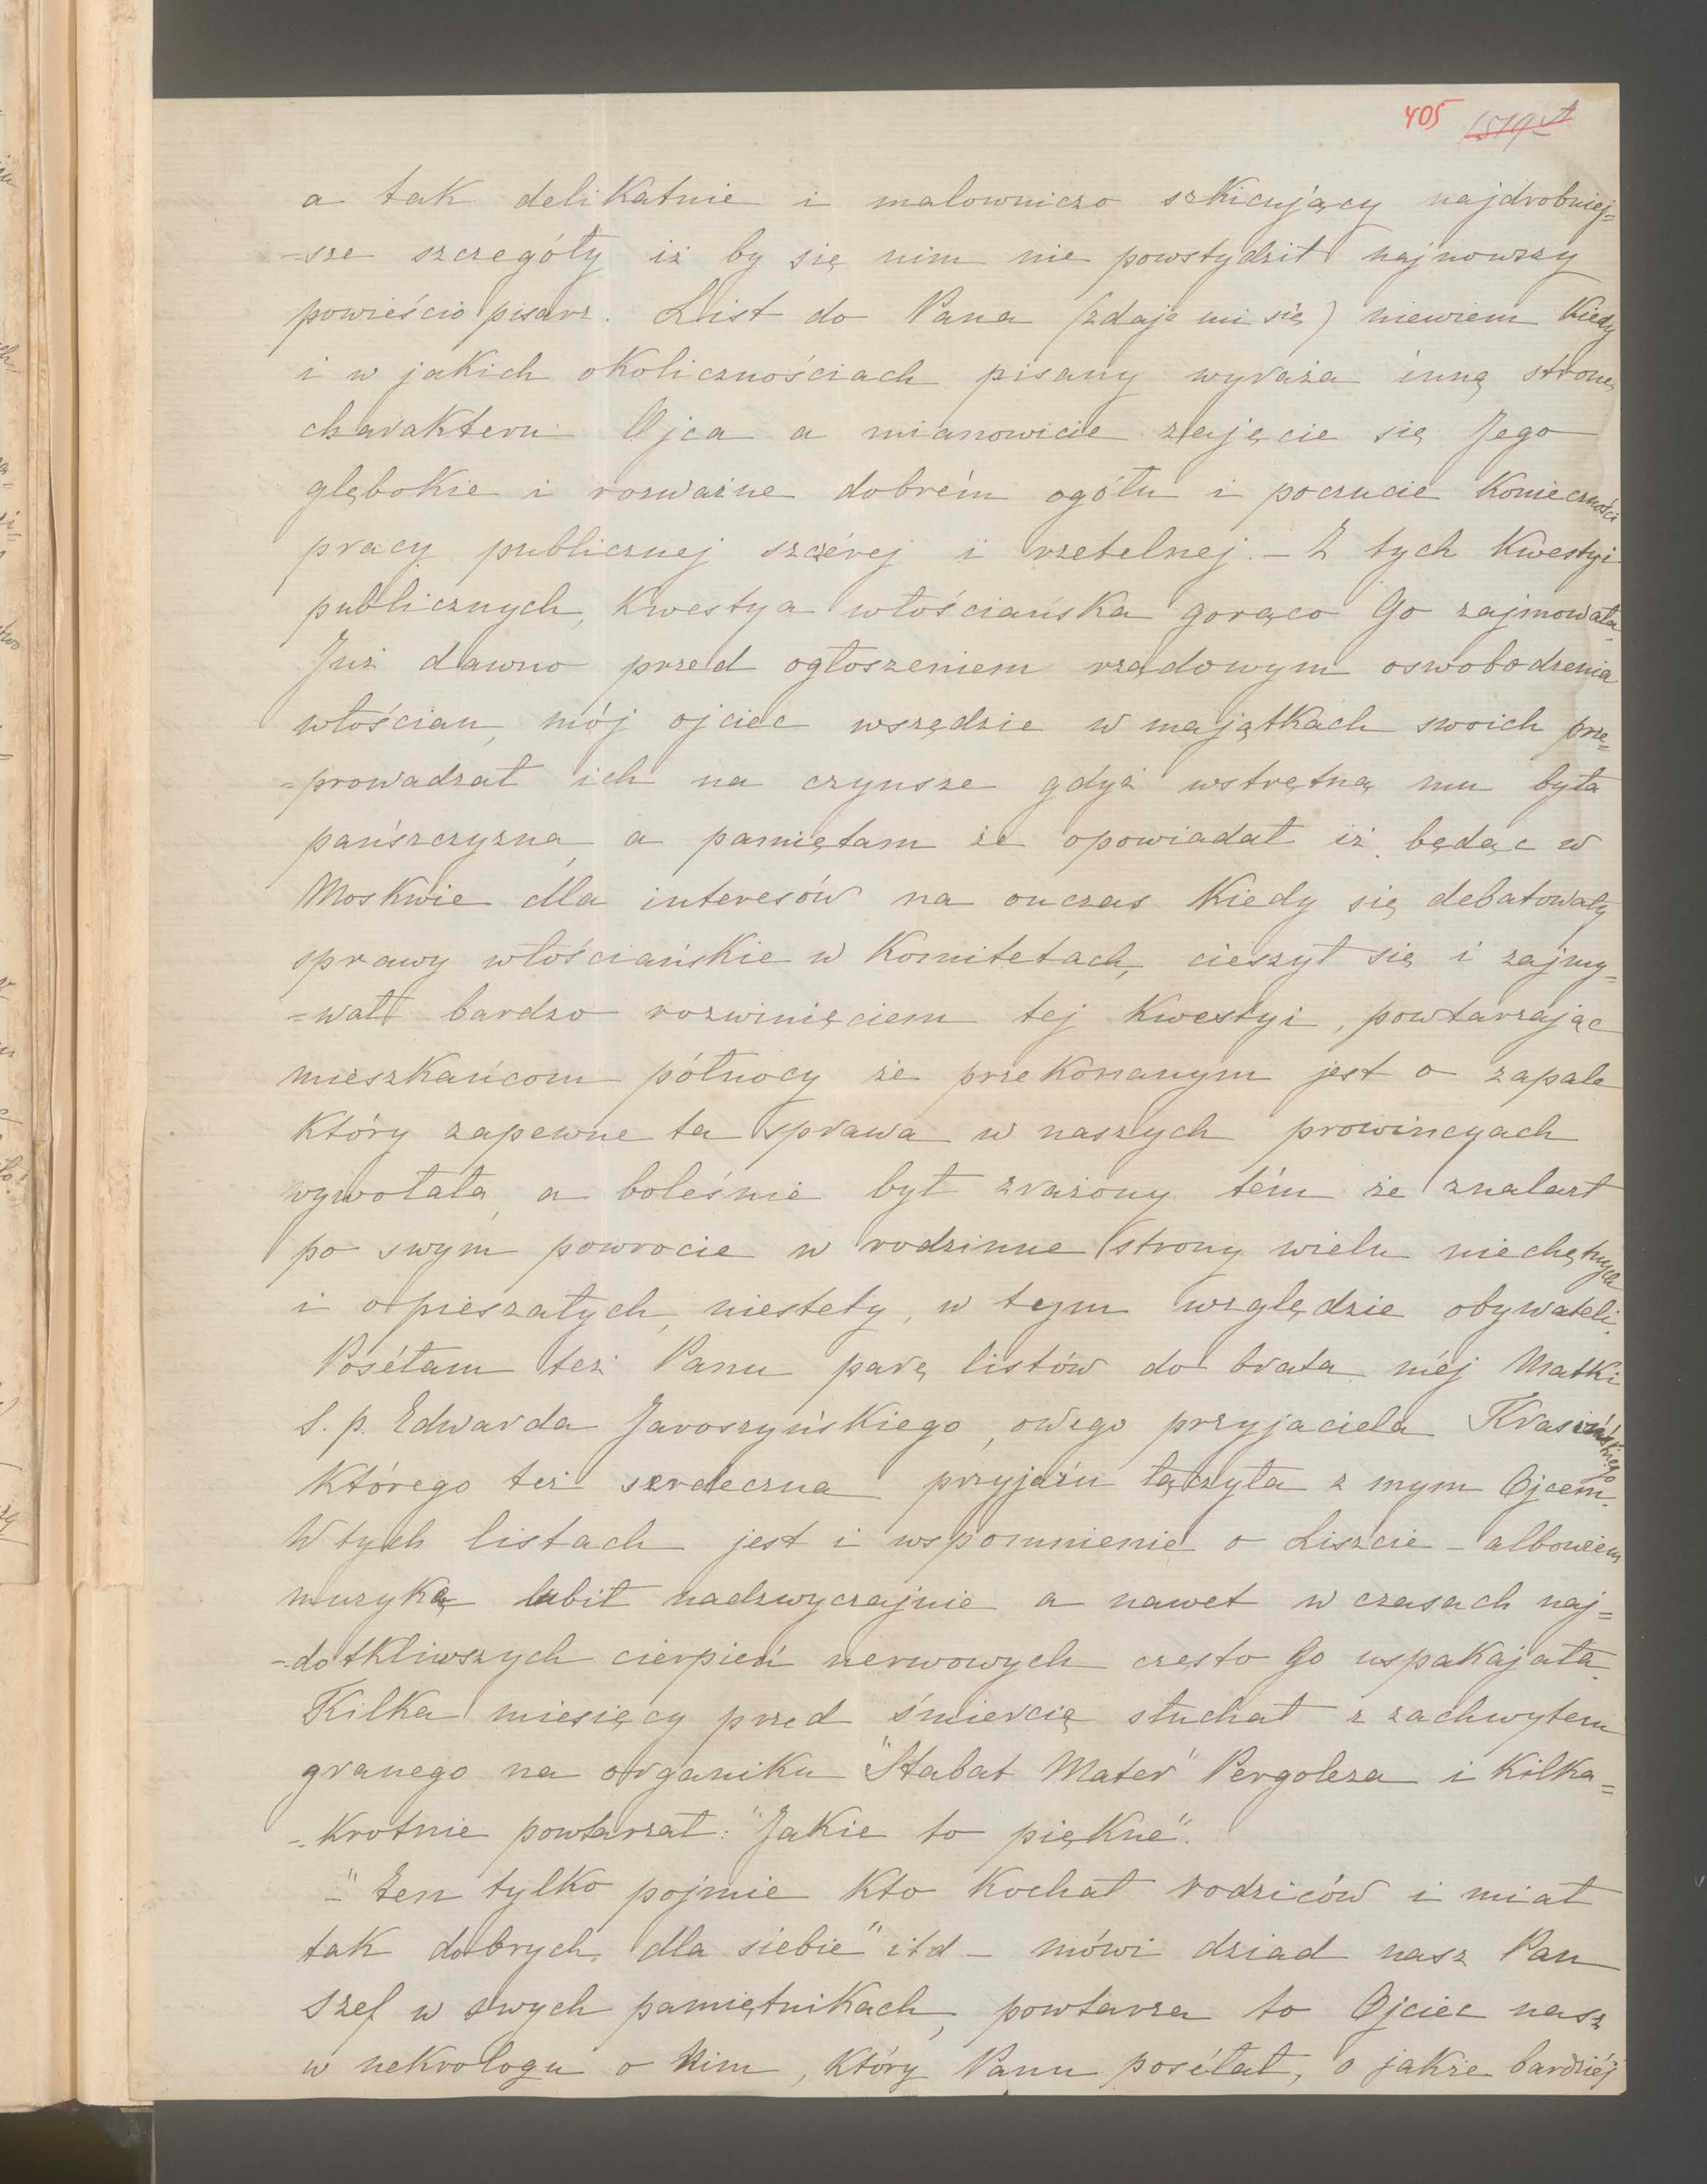 405
a tak delikatnie i malowniczo szkicujący najdrobniej=
-sze szczegóły iż by się nim nie powstydził najnowszy
powieścio pisarz. List do Pana (zdaje mi się) niewiem kiedy
i w jakich okolicznościach pisany wyraża inną stronę
charakteru Ojca a mianowicie zajęcie się Jego
głębokie i rozważne dobrém ogółu i poczucie konieczności
pracy publicznej szczérej i rzetelnej. - Z tych kwestyi
publicznych, kwestya włościańska gorąco Go zajmowała.
Już dawno przed ogłoszeniem rządowym oswobodzenia
włościan, mój ojciec wszędzie w majątkach swoich prze=
=prowadzał ich na czynsze gdyż wstrętną mu była
pańszczyzna, a pamiętam że opowiadał iż będąc w
Moskwie dla interesów na onczas kiedy się debatowały
sprawy włościańskie w Komitetach, cieszył się i zajmy=
=wał bardzo rozwinięciem tej kwestyi, powtarzając
mieszkańcom północy że przekonanym jest o zapale
który zapewne ta sprawa w naszych prowincyach
wywołała, a boleśnie był zrażony tém że znalazł
po swym powrocie w rodzinne strony wielu niechętnych
i opieszałych, niestety, w tym względzie obywateli.
Posełam też Panu parę listów do brata méj Matki
S. p. Edwarda Jaroszyńskiego, owego przyjaciela Krasińskiego
którego też serdeczna przyjaźń łączyła z mym Ojcem.
W tych listach jest i wspomnienie o Liszcie - albowiem
muzykę lubił nadzwyczajnie a nawet w czasach naj=
-dotkliwszych cierpień nerwowych często Go uspakajała.
Kilka miesięcy przed śmiercią słuchał z zachwytem
granego na organiku "Stabat Mater" Pergoleza i kilka=
-krotnie powtarzał: "Jakie to piękne".
-"Ten tylko pojmie kto kochał rodziców i miał
tak dobrych dla siebie" itd - mówi dziad nasz Pan
Szef w swych pamiętnikach, powtarza to Ojciec nasz
w nekrologu o Nim, który Panu posełał, o jakże bardziéj